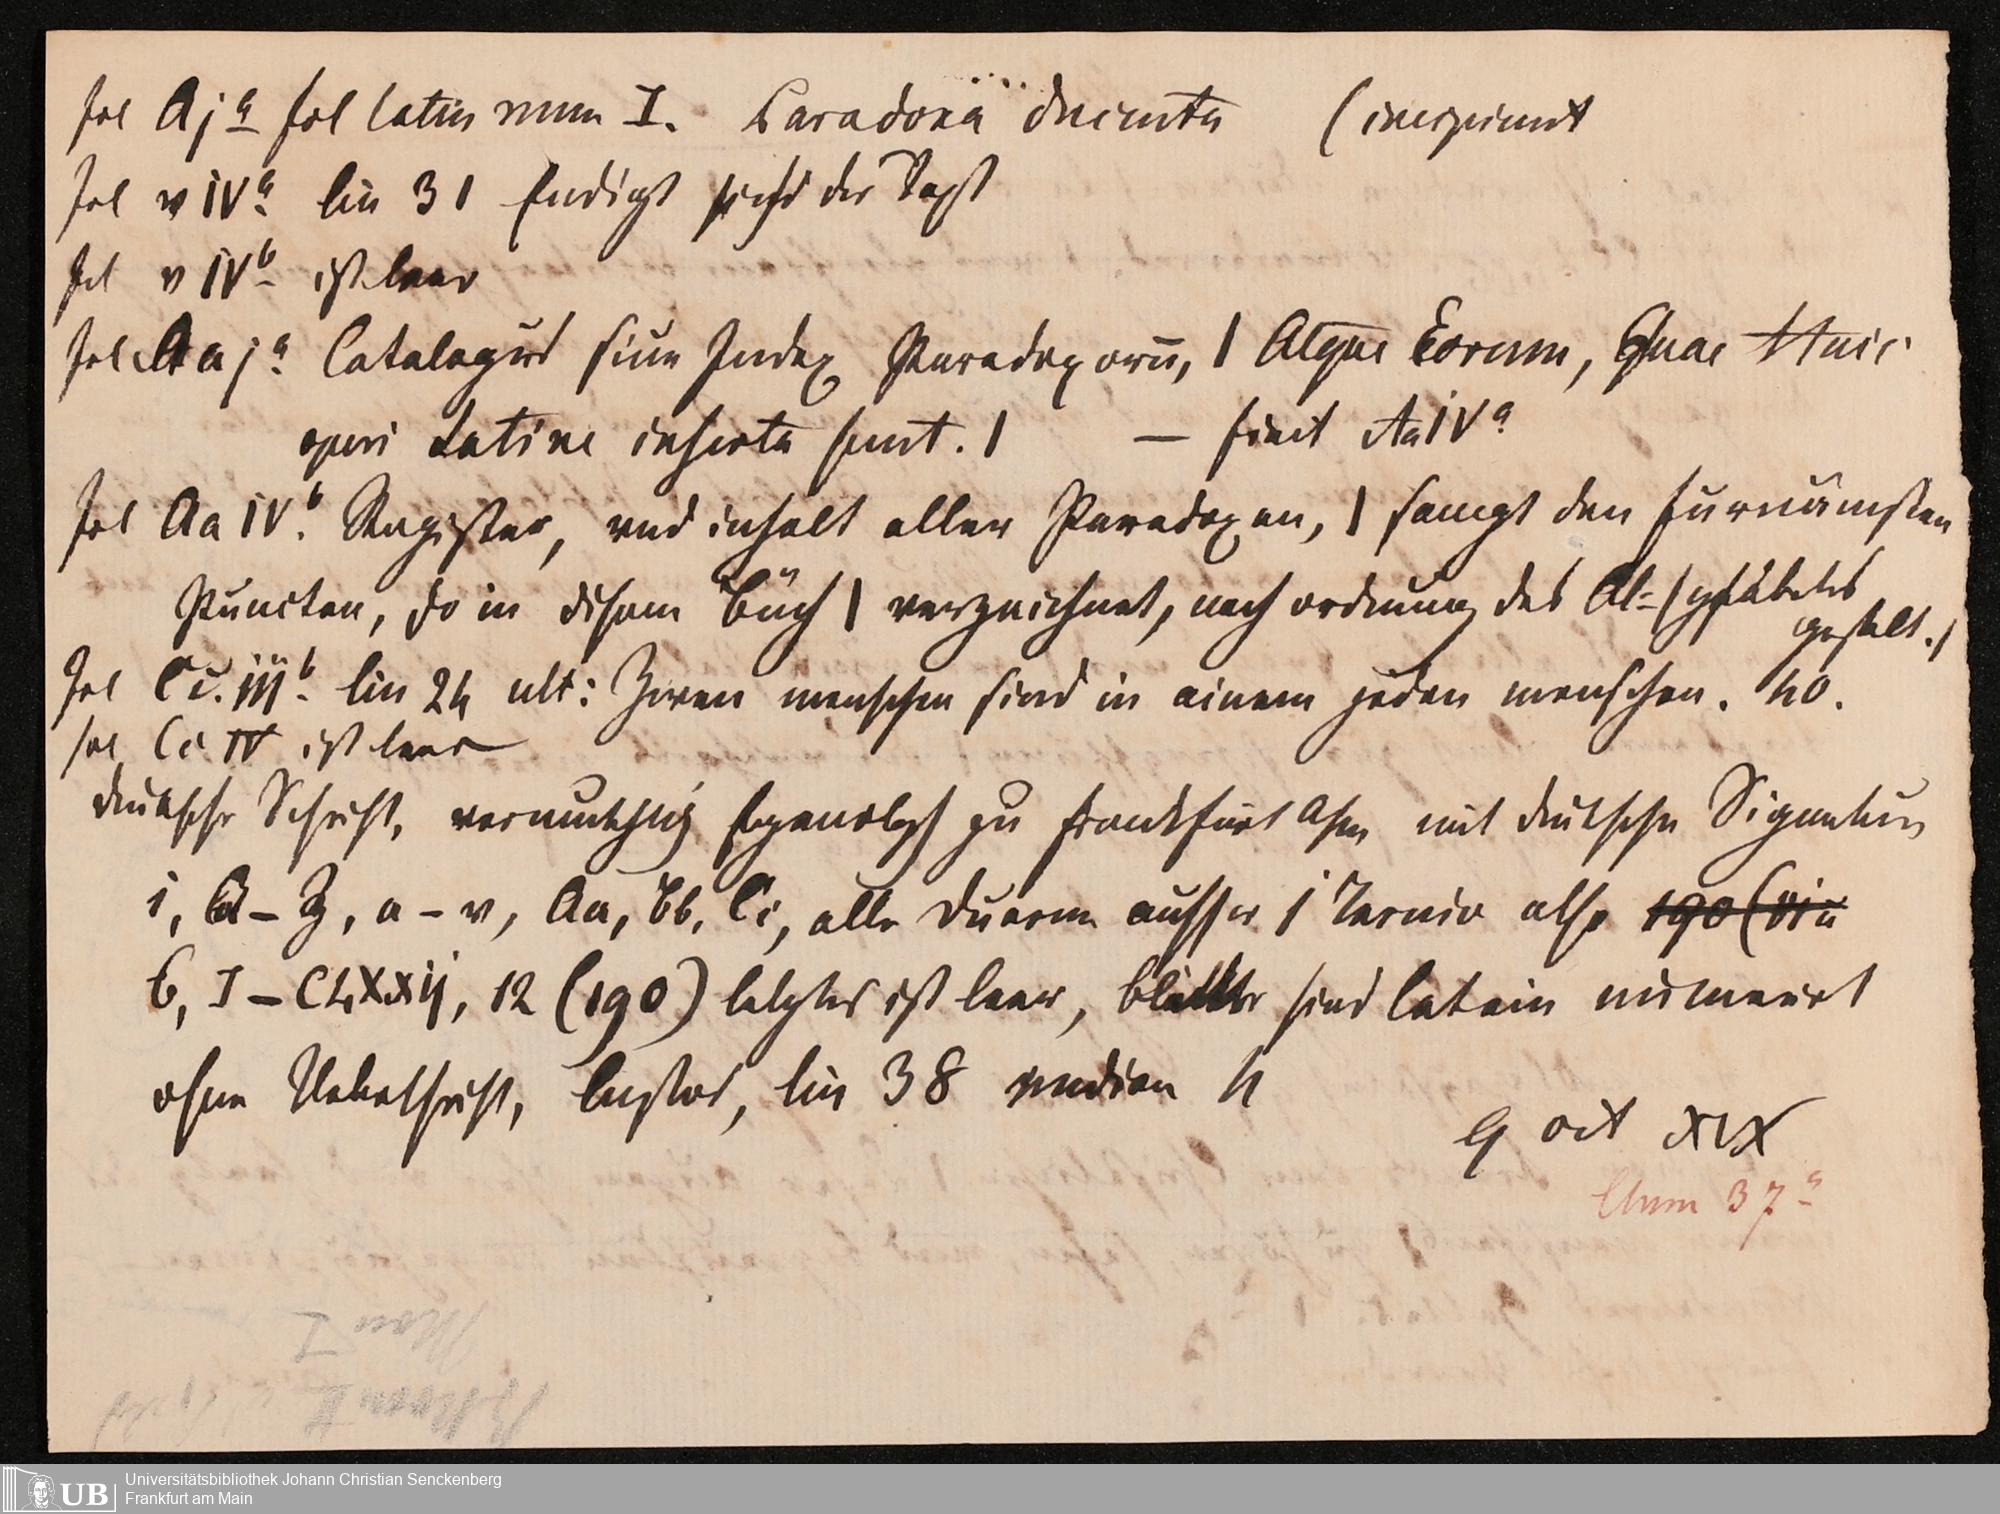 fol Aj a fol latin num I. Paradoxa ducenta (incipiunt
fol v iv a. lin 31 Endigt sich der Text
fol v iv b. ist leer
fol Aa j a. Catalogus siue Index Paradoxorū, | Atque Eorum, Quae Huic
operi Latine inserta sunt. | — finit Aa iv a
fol Aa iv b. Register, vnd inhalt aller Paradoxen, | sampt den furnämsten
Puncten, so in disem Bůch | verzeichnet, nach ordnung des Al= | phabets
gestelt. |
fol Cc. iij b. lin 24 ult: Zwen menschen sind in einem jeden menschen. 40.
fol Cc iv ist leer
deutsche Schrift, vermuthlich Egenolph zu Frankfurt mit deutscher Signatur
i, A – Z, a – v, Aa, Bb, Cc, alle Duerne ausser j Ternio also 190 (
6, I – CLXXij, 12 (190) letztes ist leer, blätter sind latein numerirt
ohne Ueberschrift, Custos, lin 38 median 4
9 oct XIX
37 a
Universitätsbibliothek Johann Christian Senckenberg
UB Frankfurt am Main